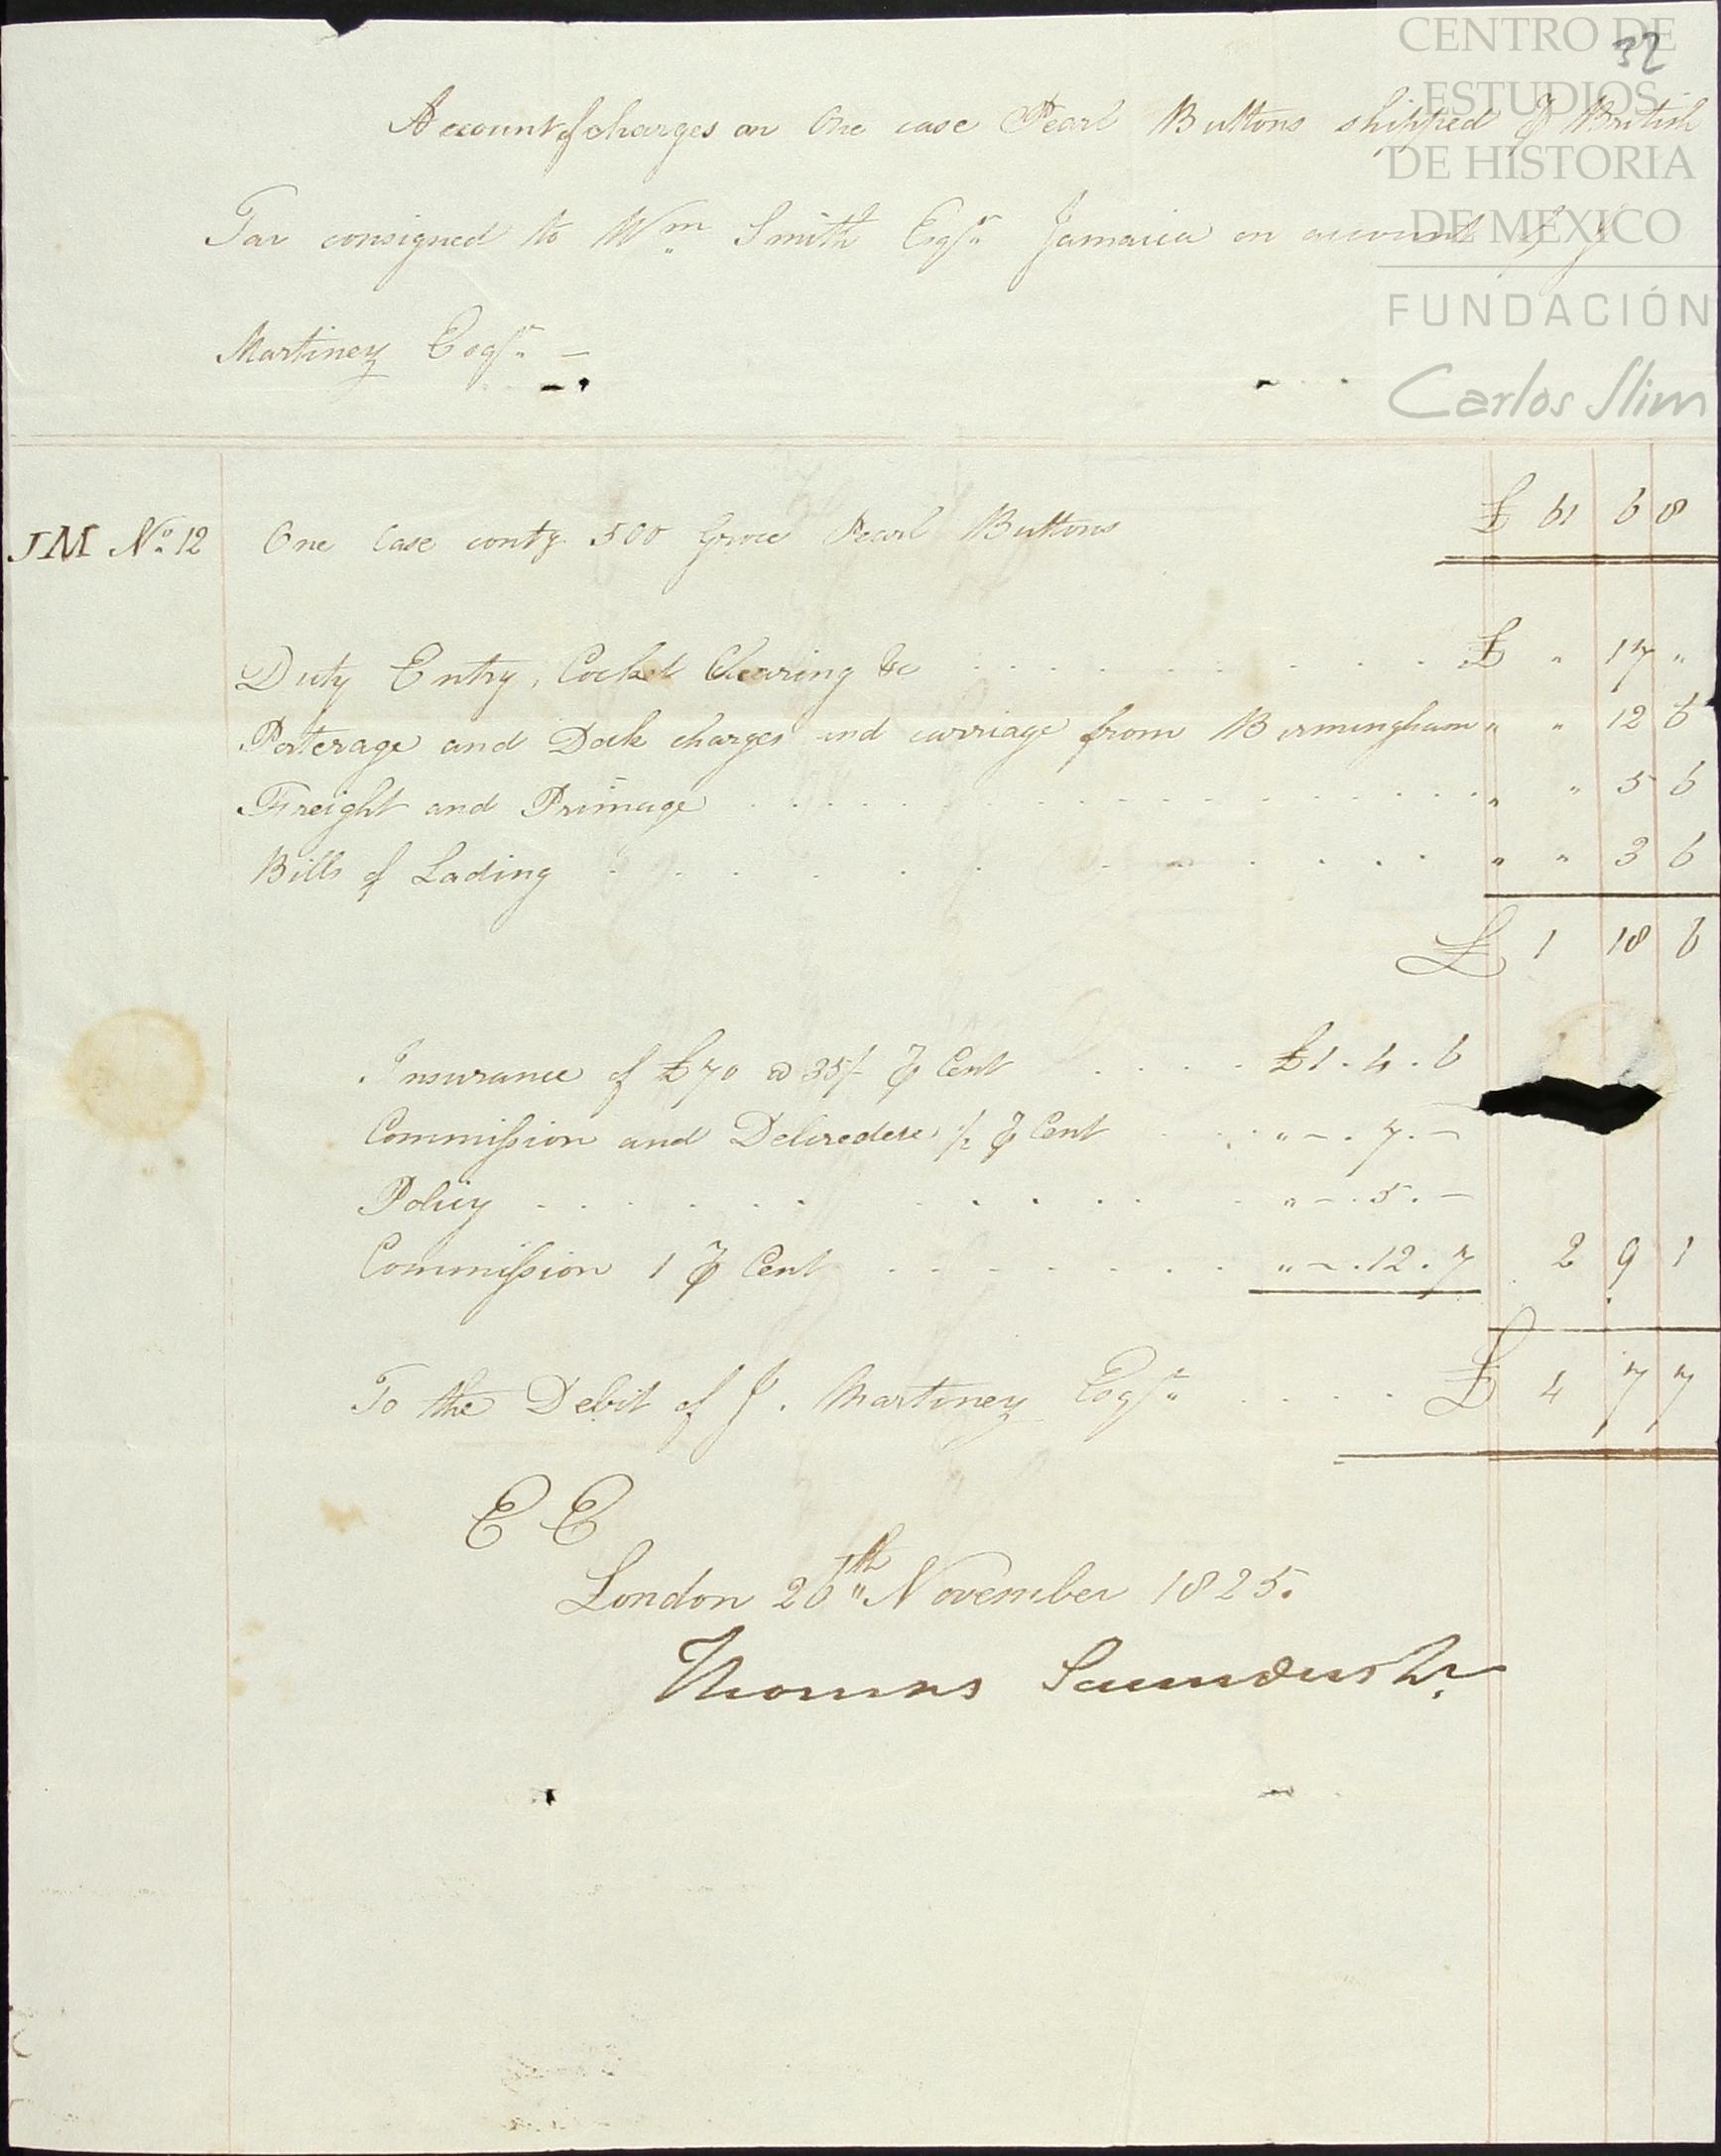 32
CENTRO DE
ESTUDIOS
DE HISTORIA
DE MEXICO
FUNDACIÓN
Carlos Slim
Account of charges on One case Pearl Buttons shipped ⅌ British
Tar consigned to Wm Smith Esqr Jamaica on account of J
Martinez Esqr —
JM No 12 One Case contg 500 Groce Pearl Buttons £ 61 6 8
Duty Entry, Cocket Clearing &c . . . . . . . . £ " 17 "
Porterage and Dock charges and carriage from Birmingham " " 12 6
Freight and Primage . . . . . . . . " " 5 6
Bills of Lading . . . . . . . . " " 3 6
£ 1 18 6
Insurance of £70 @ 35/- ⅌ Cent . . . . £1 . 4 . 6
Commission and Delcredere ½ ⅌ Cent . . . " – . 7 . –
Policy . . . . . . . . " – . 5 . –
Commission 1 ⅌ Cent . . . . . . . " – . 12 . 7 2 9 1
To the Debit of J. Martinez Esqr . . . . £ 4 7 7
E E
London 26th November 1825.
Thomas Saunders Jr.